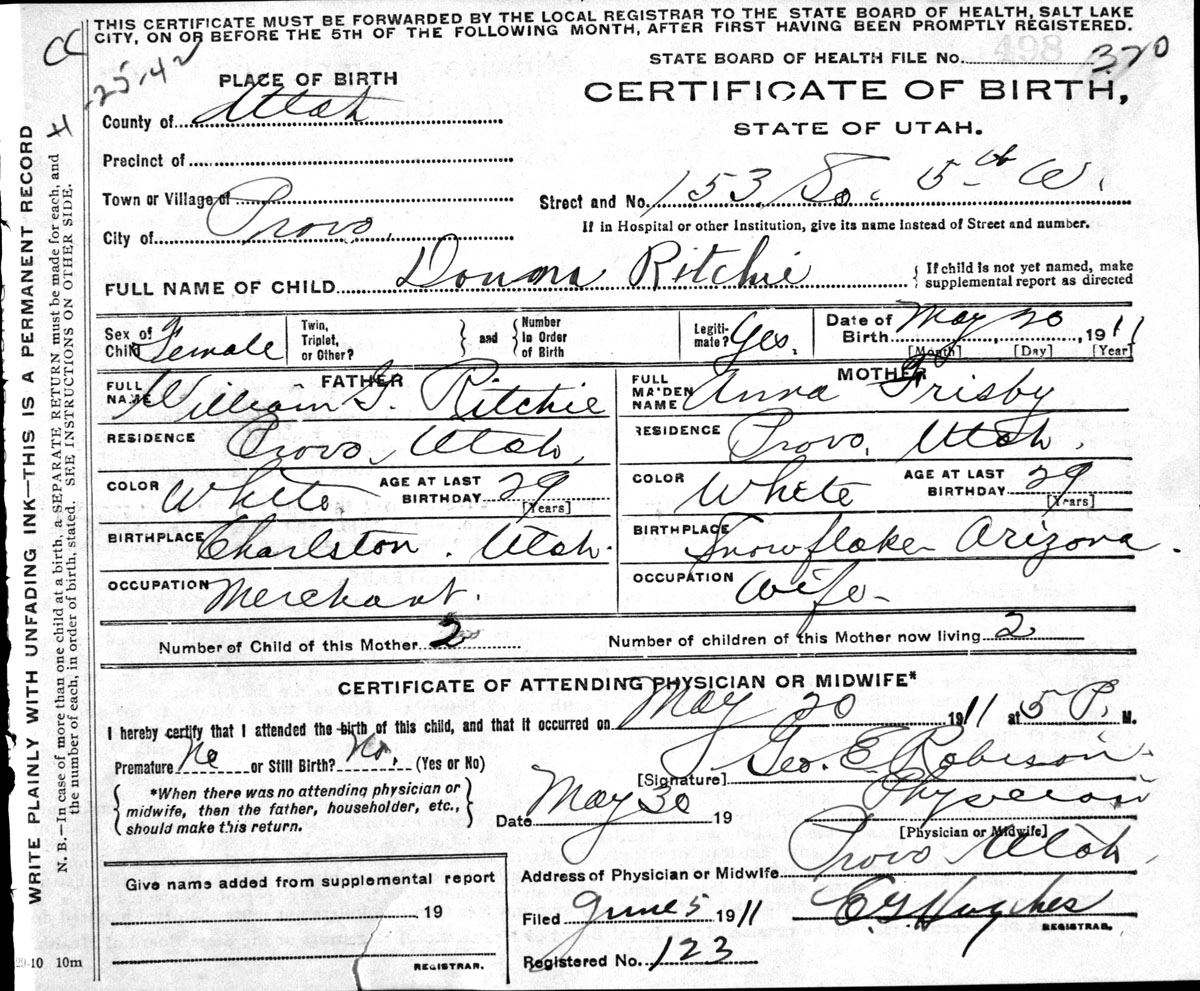 THIS CERTIFICATE MUST BE FORWARDED BY THE LOCAL REGISTRAR TO THE STATE BOARD OF HEALTH, SALT LAKE
CITY, ON OR BEFORE THE 5TH OF THE FOLLOWING MONTH, AFTER FIRST HAVING BEEN PROMPTLY REGISTERED.
CC
-25-42
STATE BOARD OF HEALTH FILE No. 498 370
PLACE OF BIRTH
CERTIFICATE OF BIRTH,
STATE OF UTAH.
County of Utah
Precinct of
Town or Village of
Street and No. 153 So. 5th W.
City of Provo,
If in Hospital or other Institution, give its name instead of Street and number.
FULL NAME OF CHILD Donna Ritchie
{ If child is not yet named, make
supplemental report as directed
Sex of Child Female
Twin, Triplet, or Other? } and { Number in Order of Birth
Legiti-mate? Yes.
Date of Birth May 20, 1911
[Month] [Day] [Year]
FATHER
MOTHER
FULL NAME William J. Ritchie
FULL MAIDEN NAME Anna Frisby
RESIDENCE Provo, Utah
RESIDENCE Provo, Utah.
COLOR White AGE AT LAST BIRTHDAY 29 [Years]
COLOR White AGE AT LAST BIRTHDAY 29 [Years]
BIRTHPLACE Charlston, Utah.
BIRTHPLACE Snowflake Arizona.
OCCUPATION Merchant.
OCCUPATION Wife-
Number of Child of this Mother 2 Number of children of this Mother now living 2
CERTIFICATE OF ATTENDING PHYSICIAN OR MIDWIFE*
I hereby certify that I attended the birth of this child, and that it occurred on May 20 1911 at 5 P. M.
Premature No or Still Birth? No. (Yes or No)
[Signature] Geo. E. Robison
{ *When there was no attending physician or
midwife, then the father, householder, etc.,
should make this return. }
Date May 30 19
Physician
[Physician or Midwife]
Address of Physician or Midwife Provo Utah,
Give name added from supplemental report
19
REGISTRAR.
Filed June 5 1911 E G Hughes
REGISTRAR.
Registered No. 123
29-10 10m
WRITE PLAINLY WITH UNFADING INK—THIS IS A PERMANENT RECORD
N. B.—In case of more than one child at a birth, a SEPARATE RETURN must be made for each, and
the number of each, in order of birth, stated. SEE INSTRUCTIONS ON OTHER SIDE.